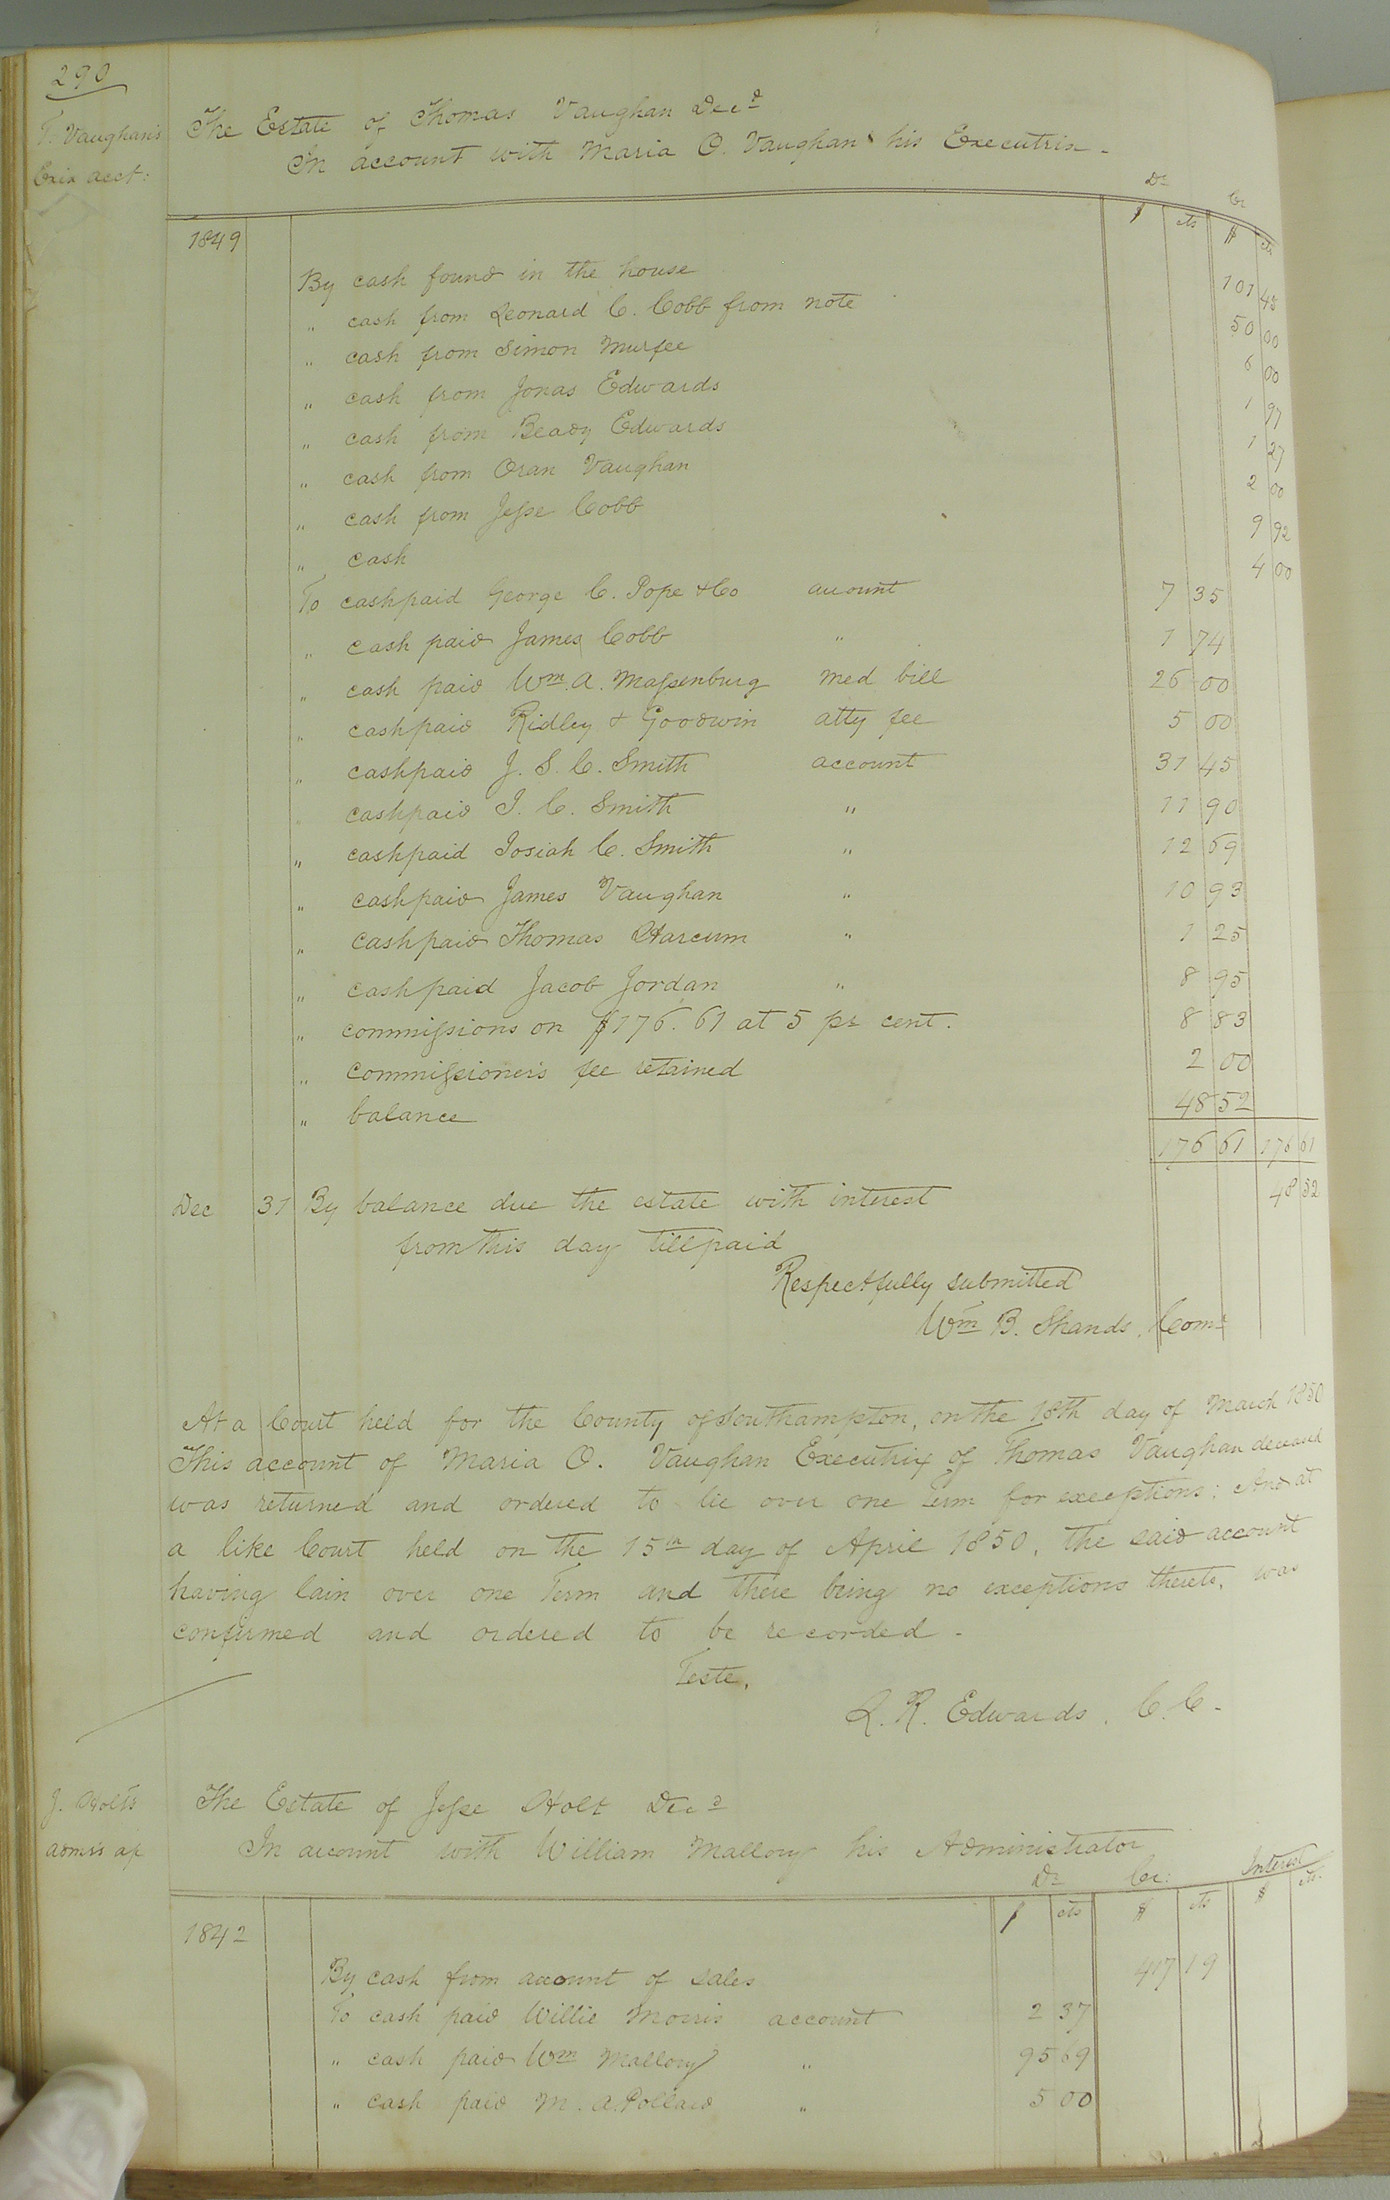 290
T. Vaughan's
Exix acct:
The Estate of Thomas Vaughan Decd
In account with Maria O. Vaughan his Executrix -
Dr Cr
$ cts $ cts
1849
By cash found in the house 101 45
" cash from Leonard C. Cobb from note 50 00
" cash from Simon Murfee 6 00
" cash from Jonas Edwards 1 97
" cash from Beady Edwards 1 27
" cash from Oran Vaughan 2 00
" cash from Jesse Cobb 9 92
" cash 4 00
To cash paid George C. Pope & Co account 7 35
" cash paid James Cobb " 1 74
" cash paid Wm. A. Massenburg med bill 26 00
" cash paid Ridley & Goodwin atty fee 5 00
" cash paid J. S. C. Smith account 31 45
" cash paid I. C. Smith " 11 90
" cash paid Josiah C. Smith " 12 69
" cash paid James Vaughan " 10 93
" cash paid Thomas Harcum " 1 25
" cash paid Jacob Jordan " 8 95
" commissions on $176.61 at 5 pr cent. 8 83
" commissioner's fee retained 2 00
" balance 48 52
176 61 176 61
Dec 31 By balance due the estate with interest 48 52
from this day till paid
Respectfully submitted
Wm B. Shands, Comr
At a Court held for the County of Southampton, on the 18th day of March 1850
This account of Maria O. Vaughan Executrix of Thomas Vaughan deceased
was returned and ordered to lie over one Term for exceptions: And at
a like Court held on the 15th day of April 1850, the said account
having lain over one Term and there being no exceptions thereto, was
confirmed and ordered to be recorded -
Teste,
L. R. Edwards, C. C. -
J. Holt's
admrs ap
The Estate of Jesse Holt Decd
In account with William Mallory his Administrator
Dr Cr: Interest
$ cts $ cts $ cts
1842
By cash from account of sales 417 19
To cash paid Willie Morris account 2 37
" cash paid Wm Mallory " 95 69
" cash paid M. A. Pollard " 5 00